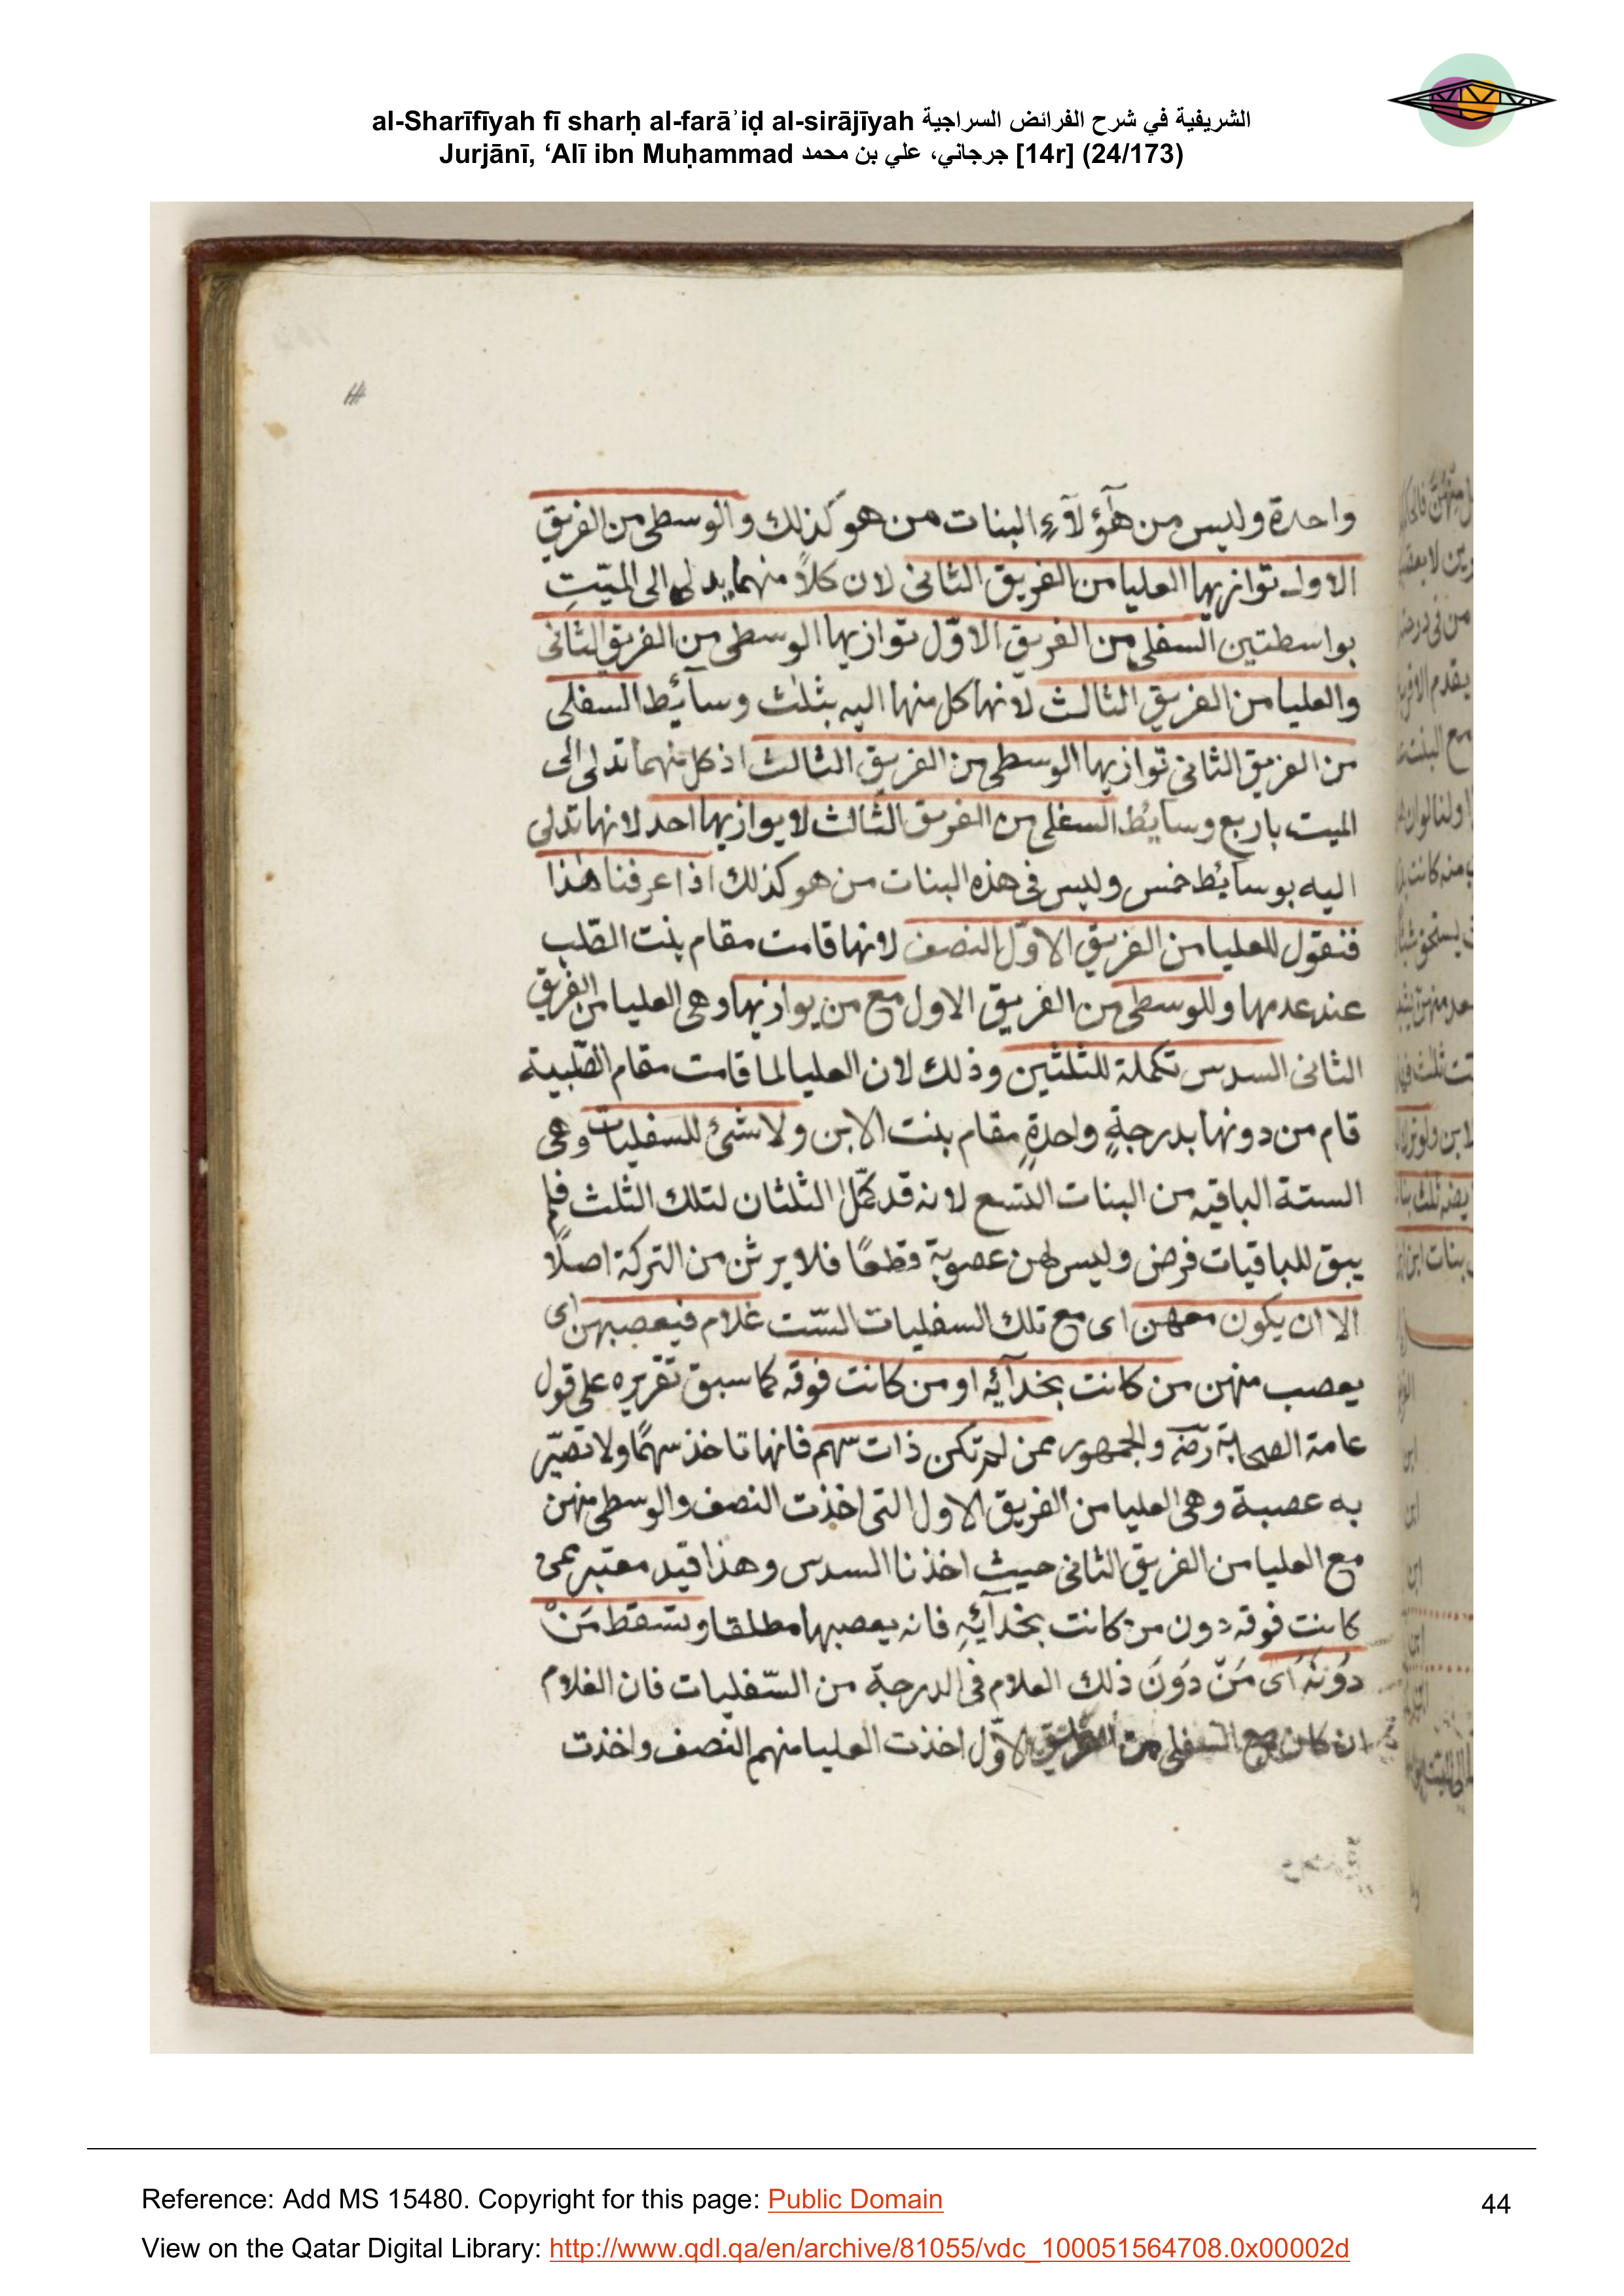 al-Sharīfīyah fī sharḥ al-farāʾiḍ al-sirājīyah الشريفية في شرح الفرائض السراجية
Jurjānī, ‘Alī ibn Muḥammad جرجاني، علي بن محمد [14r] (24/173)
واحدة وليس من هٓؤلآءِ البنات من هو كذلك والوسطى من الفريق
الاول توازيها العليا من الفريق الثانى لان كلاً منهما يدلى الى الميّتِ
بواسطتين السفلى من الفريق الاوّل توازيها الوسطى من الفريق الثانى
والعليا من الفريق الثالث لانها كل منها اليه بثلٰث وسآئط السفلى
من الفريق الثانى توازيها الوسطى من الفريق الثالث اذ كل منهما تدلى الى
الميت باربع وسايُط السفلى من الفريق الثالث لا يوازيها احد لانها تدلى
اليه بوسآئط خمس وليس فى هذه البنات من هو كذلك اذا عرفنا هٰذا
فنقول للعليا من الفريق الاوّل النصف لانها قامت مقام بنت الصّلب
عند عدمها وللوسطى من الفريق الاول مع من يوازيها وهى العليا من الفريق
الثانى السدس تكملة للثلثين وذلك لان العليا لما قامت مقام الصّلبية
قام من دونها بدرجةٍ واحدةٍ مقام بنت الابن ولا شئ للسفليات وهى
الستة الباقيه من البنات التسع لانه قد كمّل الثلثان لتلك الثلث فلم
يبق للباقيات فرض وليس لهن عصوبة قطعًا فلا يرثن من التركة اصلًا
الا ان يكون معهن اى مع تلك السفليات السّت غلام فيعصبهن اى
يعصب منهن من كانت بحذآئه او من كانت فوقه كما سبق تقريره على قول
عامة الصحابة رضه والجمهور ممن لم تكن ذات سهم فانها تاخذ سهمًا ولا تصيّر
به عصبة وهى العليا من الفريق الاول التى اخذت النصف والوسطى منهن
مع العليا من الفريق الثانى حيث اخذنا السدس وهذا قيد معتبر بمن
كانت فوقه دون من كانت بحذآئهِ فانه يعصبها مطلقا ويسقط مَنْ
دُونَهُ اى مَنْ دَوُنَ ذلك الغلام فى الدرجة من السّفليات فان الغلام
ان كان مع السفلى من الفريق الاوّل اخذت العليا منهم النصف واخذت
Reference: Add MS 15480. Copyright for this page: Public Domain
44
View on the Qatar Digital Library: http://www.qdl.qa/en/archive/81055/vdc_100051564708.0x00002d